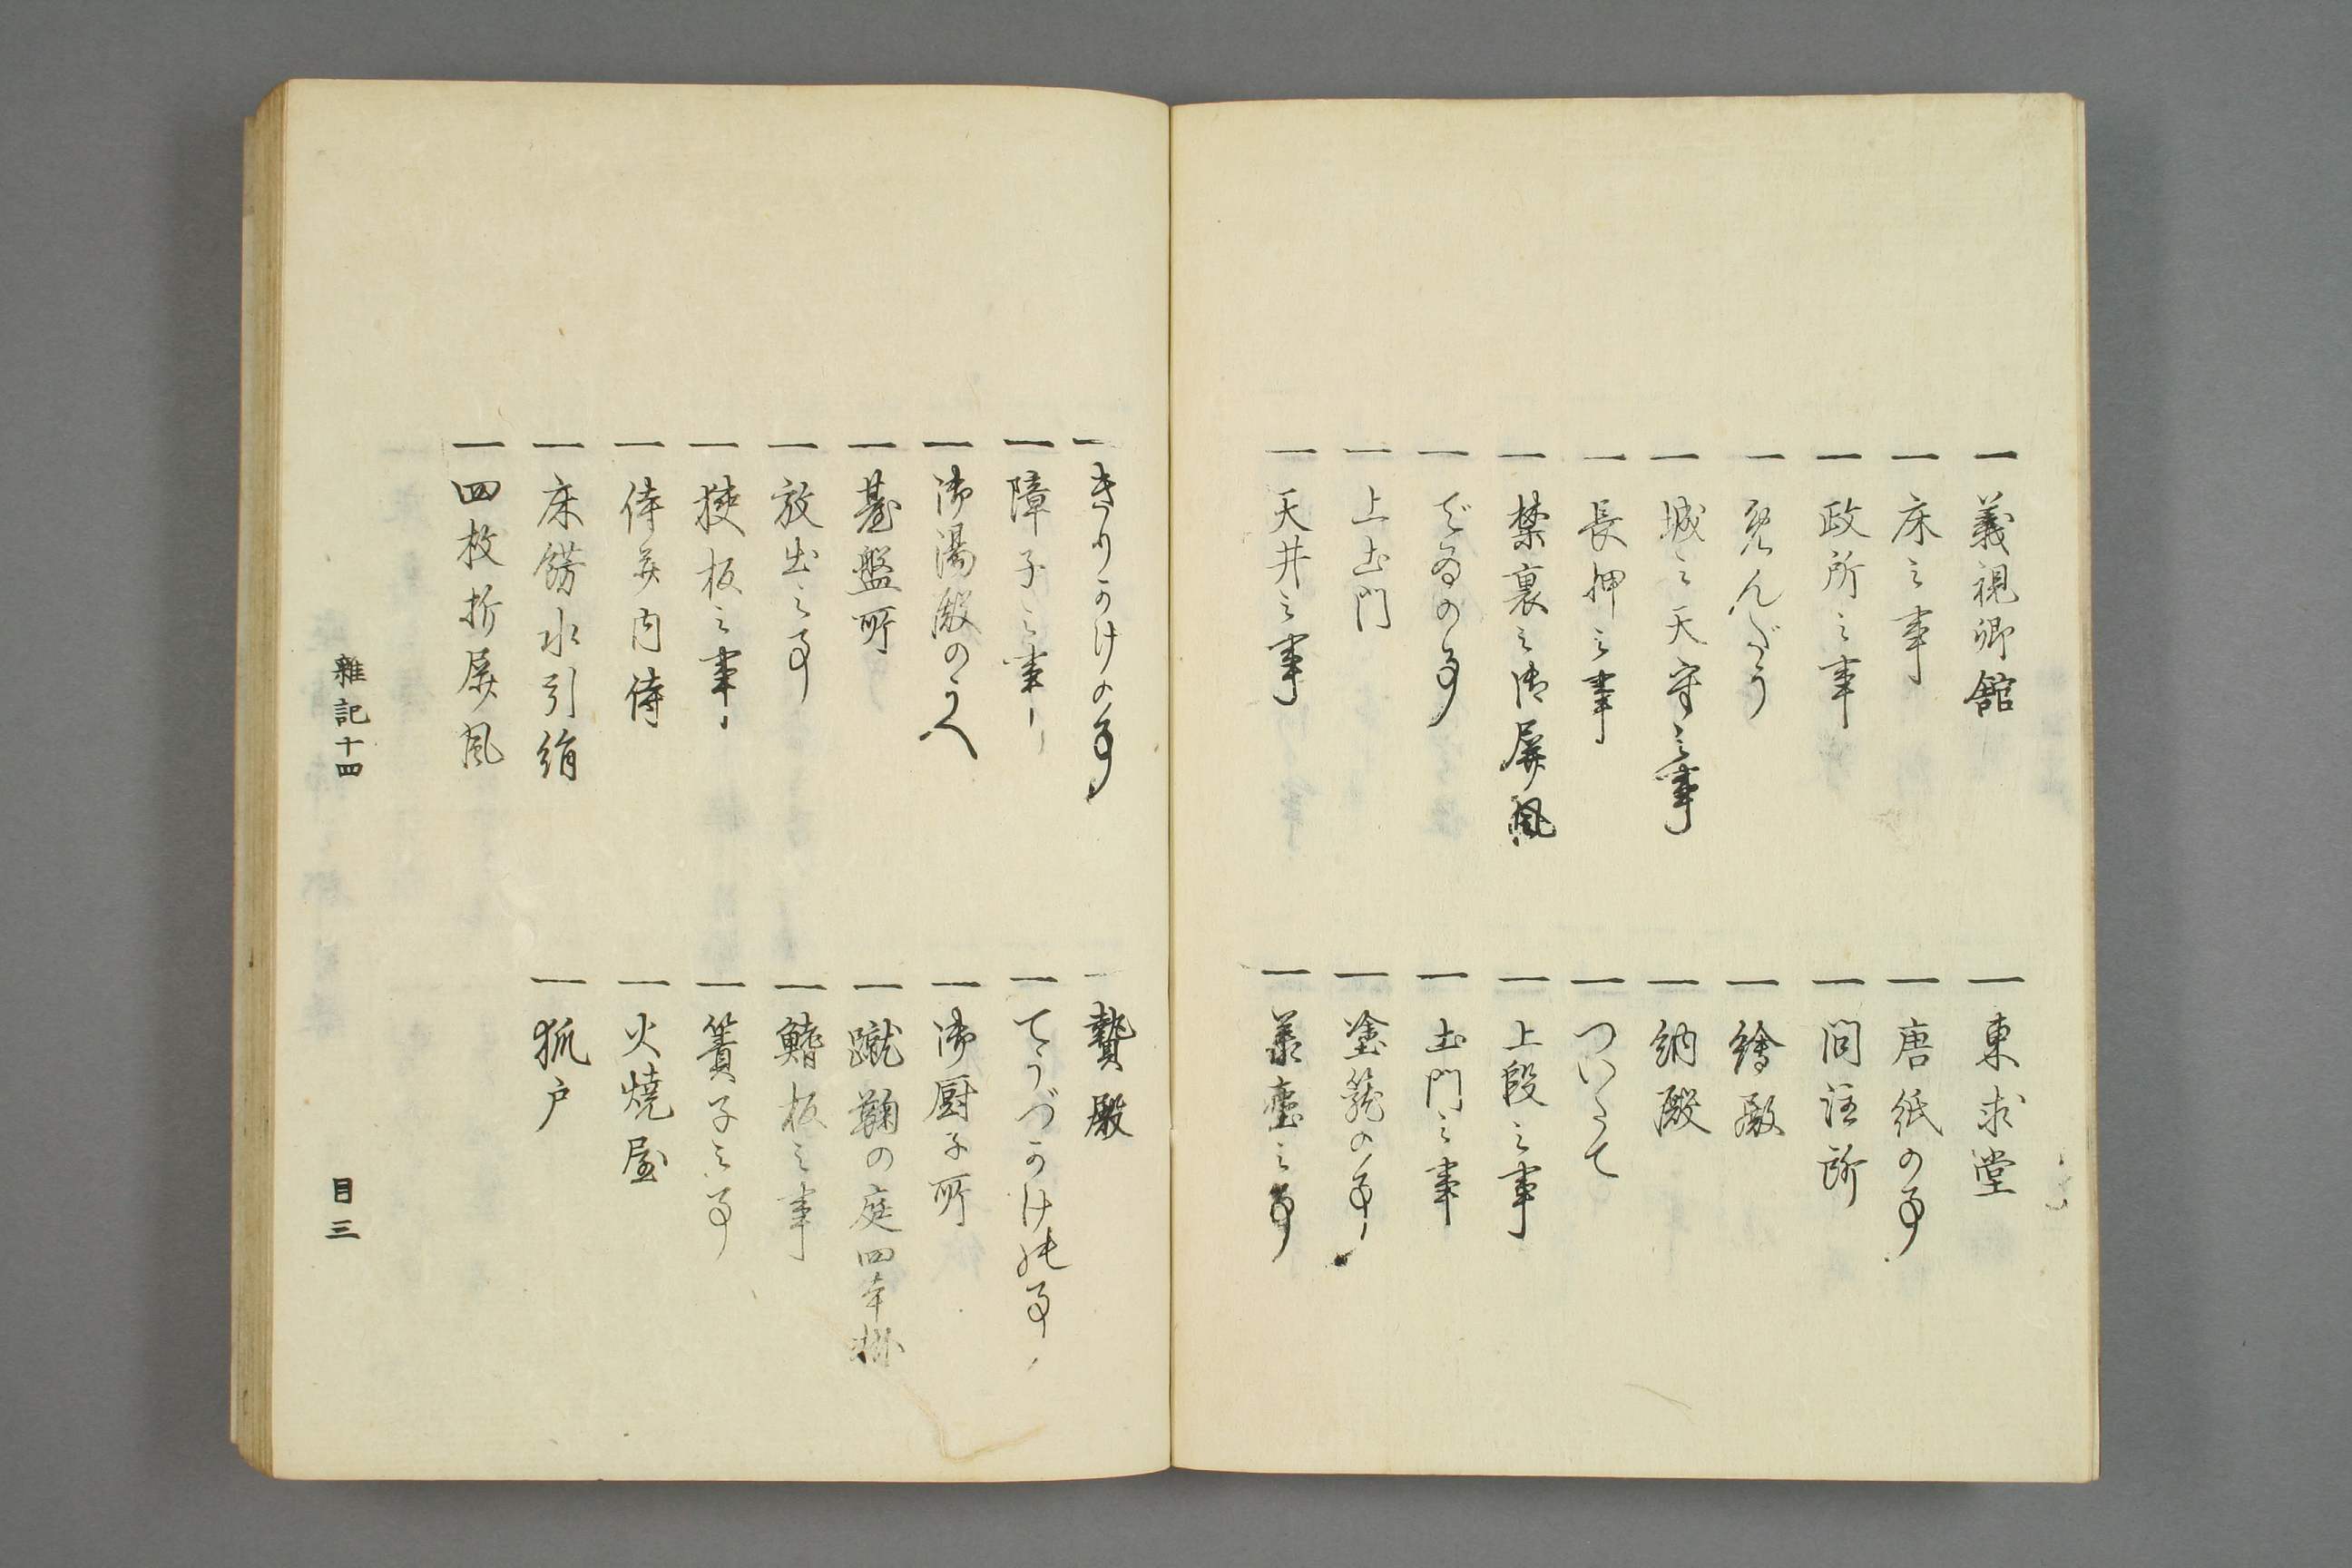 一 義視卿館
一 東求堂
一 床之事
一 唐紙の事
一 政所之事
一 問注所
一 めんだう
一 繪殿
一 城之天守之事
一 納殿
一 長押之事
一 ついたて
一 禁裏之御屏風
一 上段之事
一 でゐの事
一 土門之事
一 上土門
一 塗籠の事
一 天井之事
一 承塵之事
一 きりかけの事
一 贄殿
一 障子之事
一 てうづかけの事
一 御湯殿のうへ
一 御厨子所
一 臺盤所
一 蹴鞠の庭四本掛
一 放出之事
一 鰭板之事
一 狹板之事
一 簀子之事
一 侍并内侍
一 火燒屋
一 床餝水引絹
一 狐戸
一 四枚折屏風
雜記十四
目三